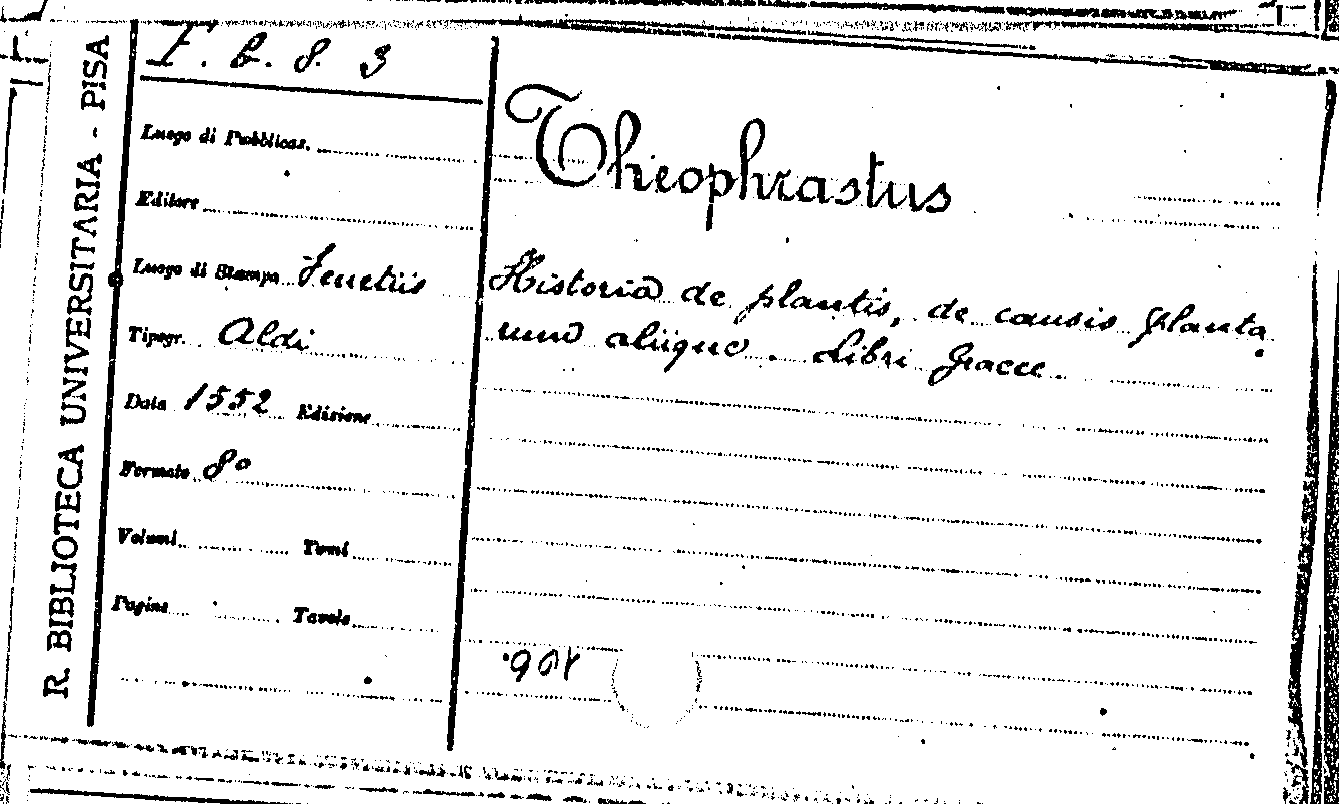 R. BIBLIOTECA UNIVERSITARIA - PISA
F. b. 8. 3
Luogo di Pubblicaz.
Editore
Luogo di Stampa Venetiis
Tipogr. Aldi
Data 1552 Edizione
Formato 8°
Volumi Tomi
Pagine Tavole
Theophrastus
Historia de plantis, de causis planta
rum aliique. Libri graece